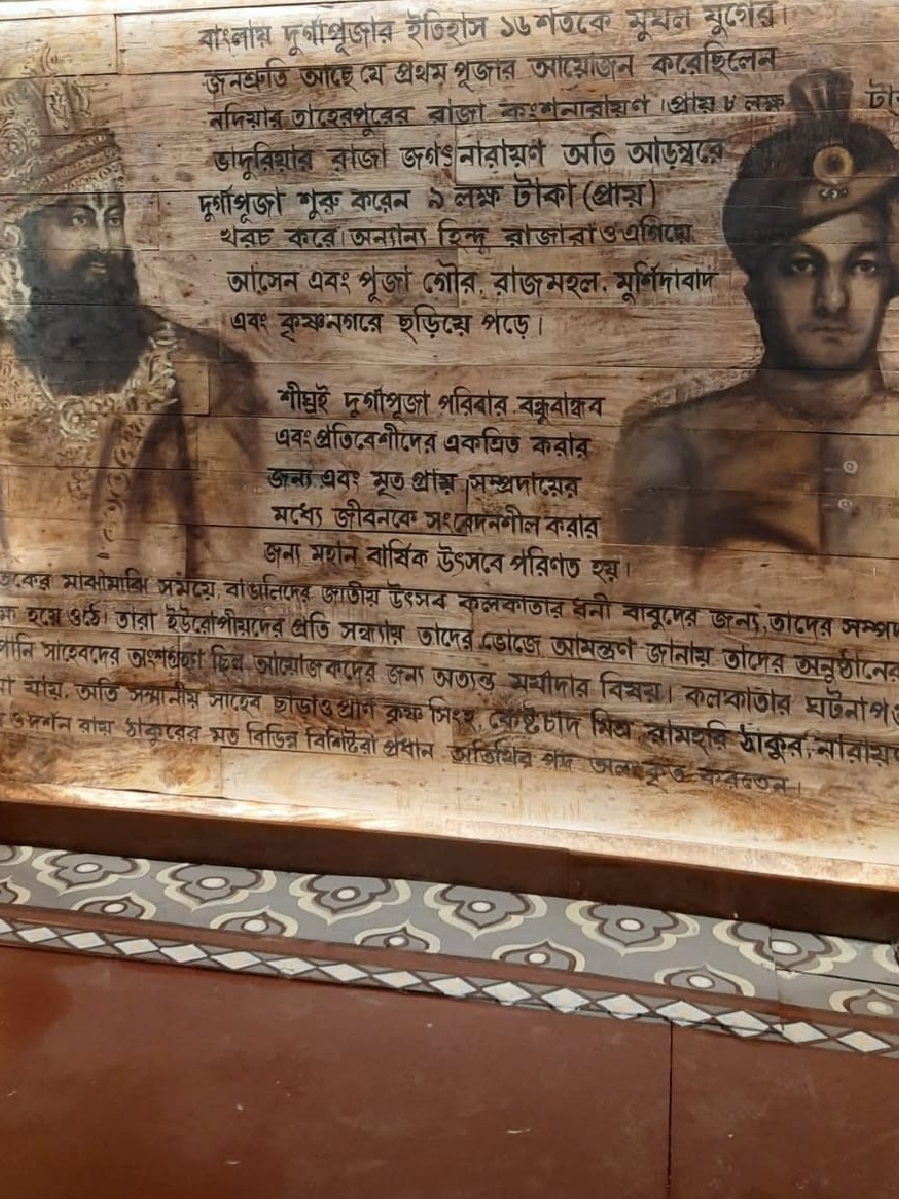 বাংলায় দুর্গাপূজার ইতিহাস ১৬ শতকে মুঘল যুগের।
জনশ্রুতি আছে যে প্রথম পূজার আয়োজন করেছিলেন
নদিয়ার তাহেরপুরের রাজা কংশনারায়ণ। প্রায় ৮ লক্ষ টা
ভাদুরিয়ার রাজা জগৎনারায়ণ অতি আড়ম্বরে
দুর্গাপূজা শুরু করেন ৯ লক্ষ টাকা (প্রায়)
খরচ করে। অন্যান্য হিন্দু রাজারাও এগিয়ে
আসেন এবং পূজা গৌর, রাজমহল, মুর্শিদাবাদ
এবং কৃষ্ণনগরে ছড়িয়ে পড়ে।
শীঘ্রই দুর্গাপূজা পরিবার, বন্ধুবান্ধব
এবং প্রতিবেশীদের একত্রিত করার
জন্য এবং মৃত প্রায় সম্প্রদায়ের
মধ্যে জীবনকে সংবেদনশীল করার
জন্য মহান বার্ষিক উৎসবে পরিণত হয়।
তকের মাঝামাঝি সময়ে, বাঙালিদের জাতীয় উৎসব কলকাতার ধনী বাবুদের জন্য, তাদের সম্পদ
হয়ে ওঠে। তারা ইউরোপীয়দের প্রতি সন্ধ্যায় তাদের ভোজে আমন্ত্রণ জানায় তাদের অনুষ্ঠানের
পানি সাহেবদের অংশগ্রহণ ছিল আয়োজকদের জন্য অত্যন্ত মর্যাদার বিষয়। কলকাতার ঘটনাপ
যায়, অতি সম্মানীয় সাহেব ছাড়াও প্রাণ কৃষ্ণ সিংহ, কেষ্টচাঁদ মিত্র, রামহরি ঠাকুর, নারায়ণ
ও দর্শন রায় ঠাকুরের মত বিভিন্ন বিশিষ্টরা প্রধান অতিথির পদ অলংকৃত করতেন।